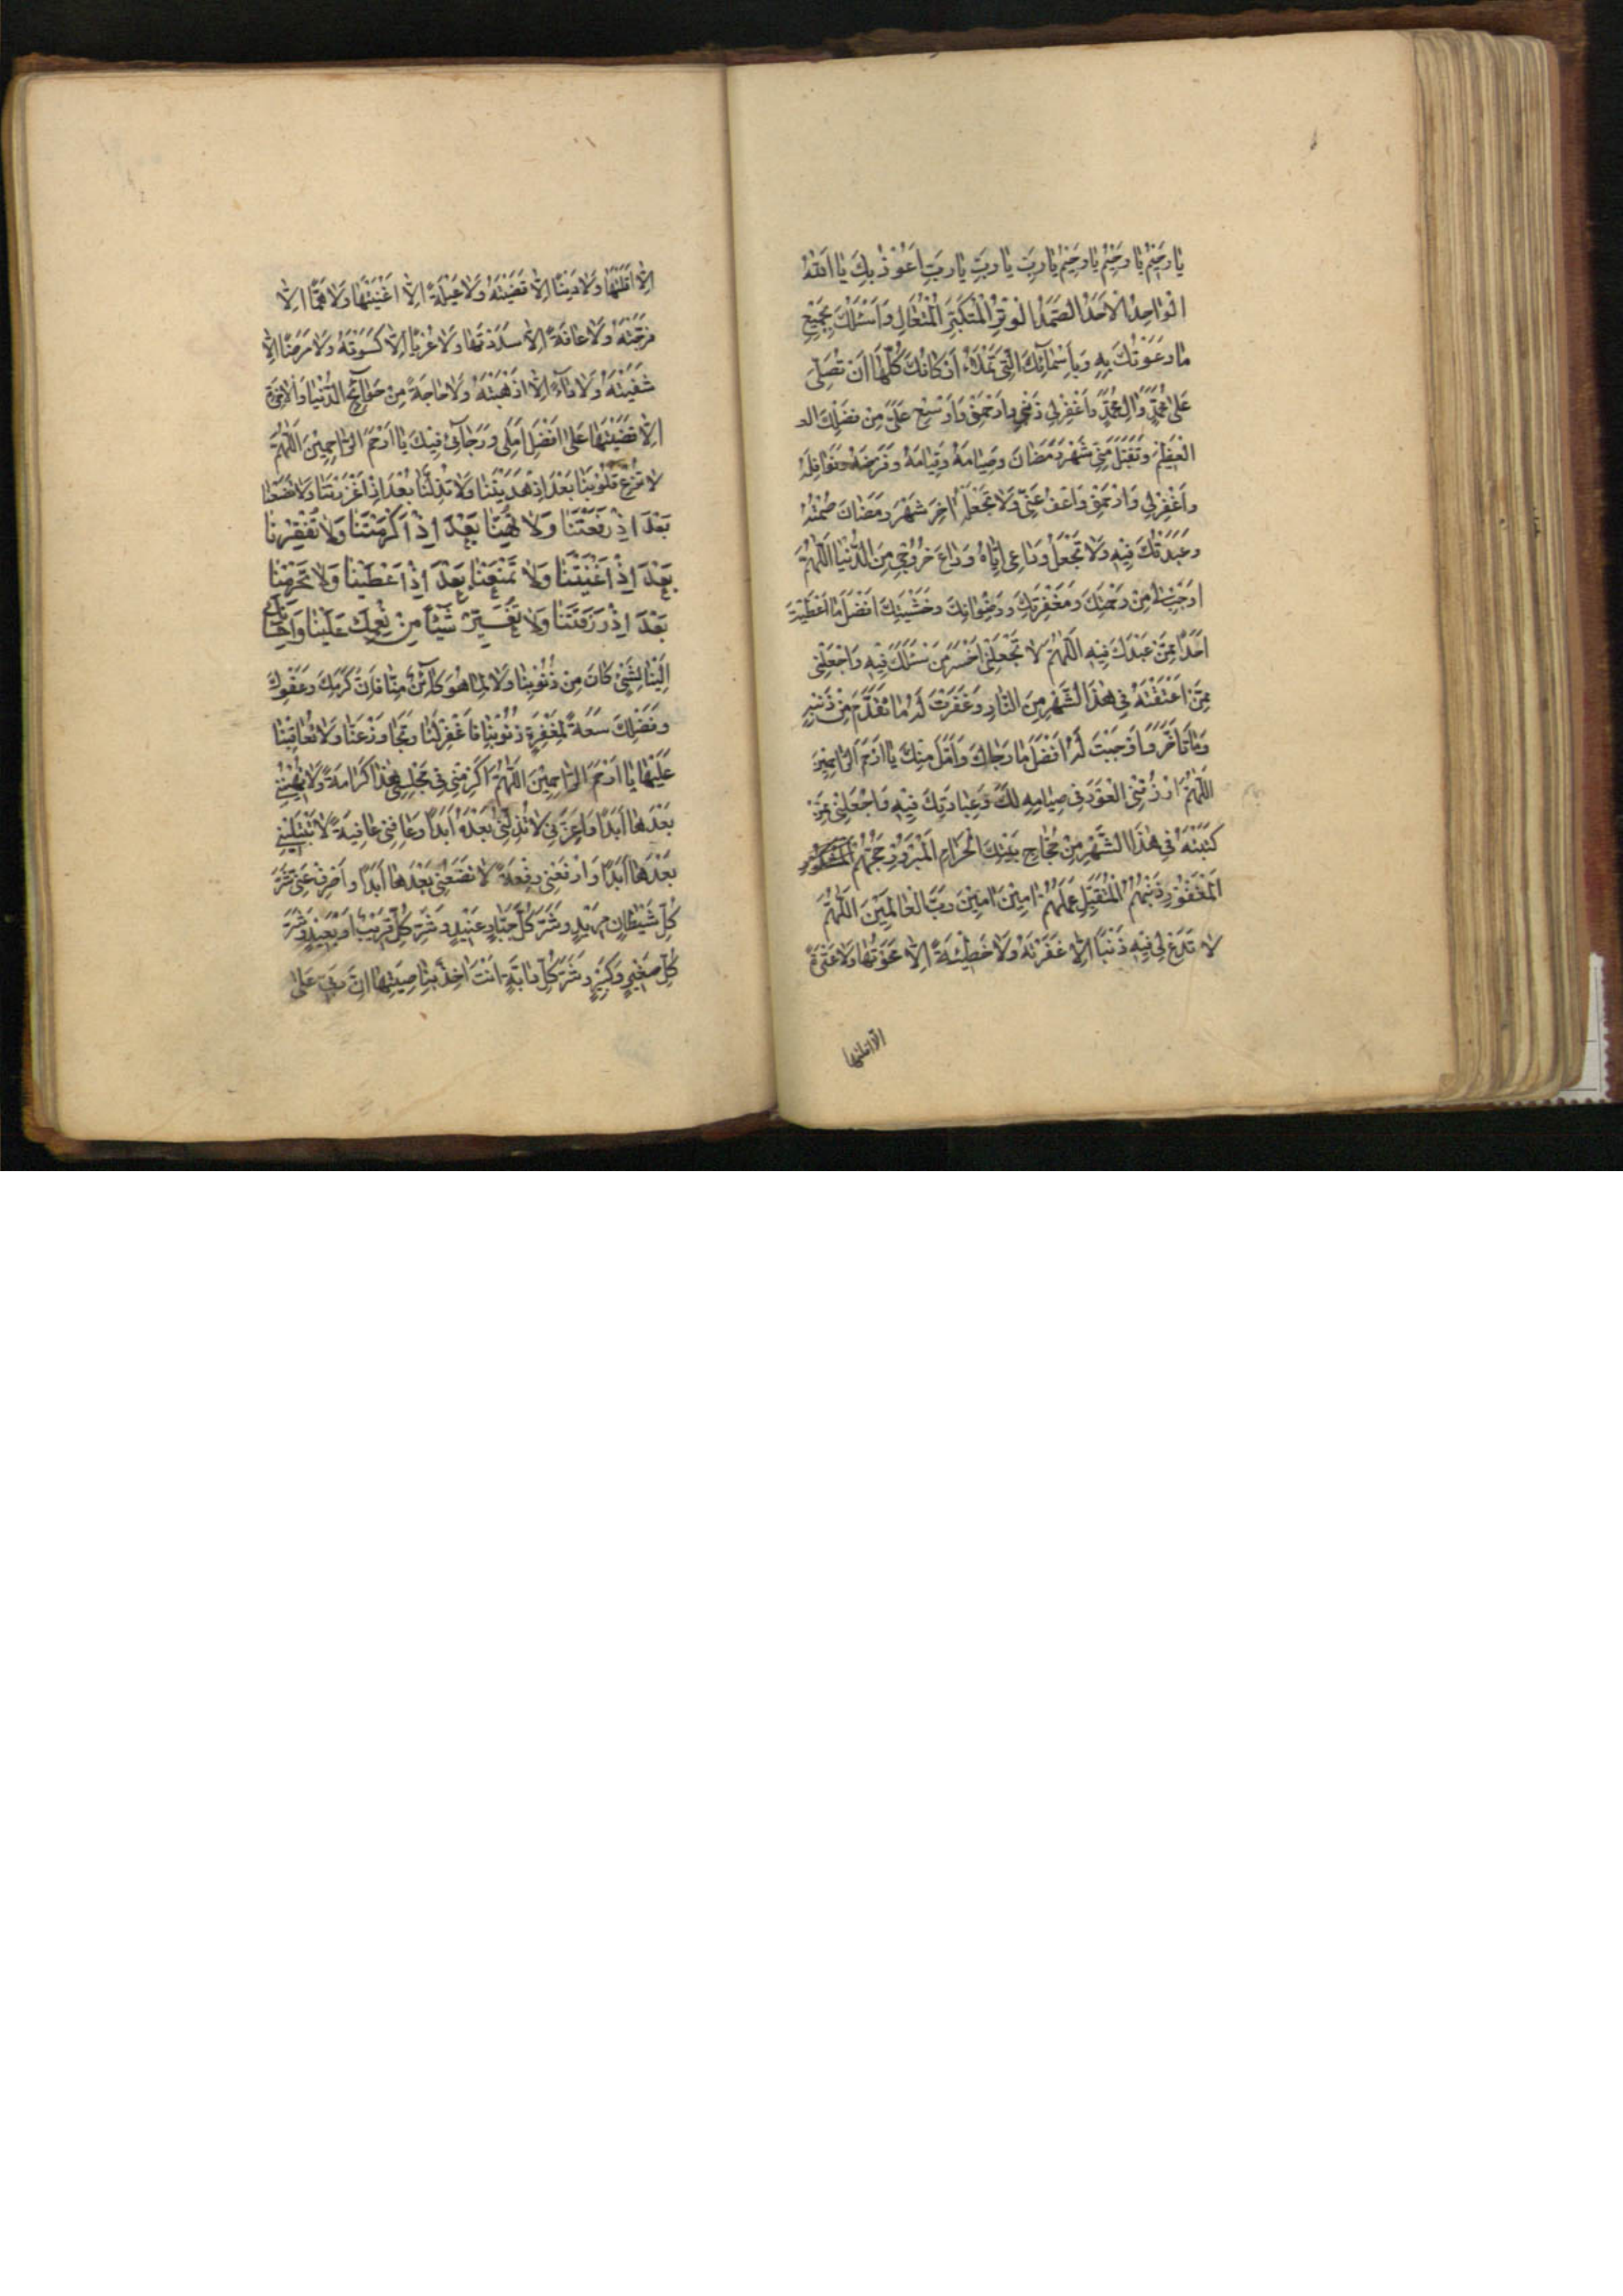 يٰا رَحيْمُ يٰا رَحيْمُ يٰا رَحيْمُ يٰا رَبِّ يٰا رَبِّ يٰا رَبِّ اَعُوْذُ بِكَ يٰا اَللّٰهُ
الْوٰاحِدُ الْاَحَدُ الصَّمَدُ الْوِتْرُ الْمُتَكَبِّرُ الْمُتَعٰالِ وَاَسْئَلُكَ بِجَميْعِ
مٰا دَعَوْتُكَ بِهِ وَبِاَسْمٰآئِكَ الَّتى تَمْلَاءُ اَرْكٰانَكَ كُلَّهٰا اَنْ تُصَلِّىَ
عَلىٰ مُحَمَّدٍ وَّاٰلِ مُحَمَّدٍ وَّاغْفِرْ لى ذَنْبى وَارْحَمْنى وَاَوْسِعْ عَلَىَّ مِنْ فَضْلِكَ
الْعَظيْمِ وَتَقَبَّلْ مِنّى شَهْرَ رَمَضٰانَ وَصِيٰامَهُ وَقِيٰامَهُ وَفَرْضَهُ وَنَوٰافِلَهُ
وَاغْفِرْ لى وَارْحَمْنى وَاعْفُ عَنّى وَلَا تَجْعَلْهُ اٰخِرَ شَهْرِ رَمَضٰانَ صُمْتُهُ
وَعَبَدْتُكَ فِيْهِ وَلَا تَجْعَلْ وِدٰاعى اِيّٰاهُ وِدٰاعَ خُرُوْجى مِنَ الدُّنْيٰا اَللّٰهُمَّ
اَوْجِبْ لى مِنْ رَحْمَتِكَ وَمَغْفِرَتِكَ وَرِضْوٰانِكَ وَخَشْيَتِكَ اَفْضَلَ مٰا اَعْطَيْتَ
اَحَدًا مِمَّنْ عَبَدَكَ فِيْهِ اَللّٰهُمَّ لَا تَجْعَلْنى اَخْسَرَ مَنْ سَئَلَكَ فِيْهِ وَاجْعَلْنى
مِمَّنْ اَعْتَقْتَهُ فى هٰذَا الشَّهْرِ مِنَ النّٰارِ وَغَفَرْتَ لَهُ مٰا تَقَدَّمَ مِنْ ذَنْبِهِ
وَمٰا تَاَخَّرَ وَاَوْجَبْتَ لَهُ اَفْضَلَ مٰا رَجٰاكَ وَاَمَّلَ مِنْكَ يٰا اَرْحَمَ الرّٰاحِميْنَ
اَللّٰهُمَّ ارْزُقْنى الْعَوْدَ فى صِيٰامِهِ لَكَ وَعِبٰادَتِكَ فِيْهِ وَاجْعَلْنى مِمَّنْ
كَتَبْتَهُ فى هٰذَا الشَّهْرِ مِنْ حُجّٰاجِ بَيْتِكَ الْحَرٰامِ الْمَبْرُوْرِ حَجُّهُمُ الْمَشْكُوْرِ
الْمَغْفُوْرِ ذَنْبُهُمُ الْمُتَقَبَّلِ عَمَلُهُمْ اٰميْنَ اٰميْنَ رَبَّ الْعٰالَميْنَ اَللّٰهُمَّ
لٰا تَدَعْ لى فِيْهِ ذَنْبًا اِلّٰا غَفَرْتَهُ وَلَا خَطيْئَةً اِلّٰا مَحَوْتَهٰا وَلَا عَثْرَةً
الّٰا اقلتها
اِلّٰا اَقَلْتَهٰا وَلَا دَيْنًا اِلّٰا قَضَيْتَهُ وَلَا عَيْلَةً اِلّٰا اَغْنَيْتَهٰا وَلَا هَمًّا اِلّٰا
فَرَّجْتَهُ وَلَا فٰاقَةً اِلّٰا سَدَدْتَهٰا وَلَا عُرْيًا اِلّٰا كَسَوْتَهُ وَلَا مَرَضًا اِلّٰا
شَفَيْتَهُ وَلَا دٰآءً اِلّٰا اَذْهَبْتَهُ وَلَا حٰاجَةً مِنْ حَوٰآئِجِ الدُّنْيٰا وَالْاٰخِرَةِ
اِلّٰا قَضَيْتَهٰا عَلىٰ اَفْضَلِ اَمَلى وَرَجٰآئى فِيْكَ يٰا اَرْحَمَ الرّٰاحِميْنَ اَللّٰهُمَّ
لَا تُزِغْ قُلُوْبَنٰا بَعْدَ اِذْ هَدَيْتَنٰا وَلَا تُذِلَّنٰا بَعْدَ اِذْ اَعْزَزْتَنٰا وَلَا تَضَعْنٰا
بَعْدَ اِذْ رَفَعْتَنٰا وَلَا تُهِنّٰا بَعْدَ اِذْ اَكْرَمْتَنٰا وَلَا تُفْقِرْنٰا
بَعْدَ اِذْ اَغْنَيْتَنٰا وَلَا تَمْنَعْنٰا بَعْدَ اِذْ اَعْطَيْتَنٰا وَلَا تَحْرِمْنٰا
بَعْدَ اِذْ رَزَقْتَنٰا وَلَا تُغَيِّرْ شَيْئًا مِنْ نِعَمِكَ عَلَيْنٰا وَاِحْسٰانِكَ
اِلَيْنٰا لِشَىْءٍ كٰانَ مِنْ ذُنُوْبِنٰا وَلَا لِمٰا هُوَ كٰآئِنٌ مِنّٰا فَاِنَّ كَرَمِكَ وَعَفْوِكَ
وَفَضْلِكَ سَعَةً لِمَغْفِرَةِ ذُنُوْبِنٰا فَاغْفِرْ لَنٰا وَتَجٰاوَزْ عَنّٰا وَلَا تُعٰاقِبْنٰا
عَلَيْهٰا يٰا اَرْحَمَ الرّٰاحِميْنَ اَللّٰهُمَّ اَكْرِمْنى فى مَجْلِسى هٰذٰا كَرٰامَةً لَا تُهِيْنُنى
بَعْدَهٰا اَبَدًا وَاَعِزَّنى لَا تُذِلُّنى بَعْدَهُ اَبَدًا وَعٰافِنى عٰافِيَةً لَا تَبْتَلِيْنى
بَعْدَهٰا اَبَدًا وَارْفَعْنى رِفْعَةً لَا تَضَعُنى بَعْدَهٰا اَبَدًا وَاصْرِفْ عَنّى شَرَّ
كُلِّ شَيْطٰانٍ مَريْدٍ وَشَرَّ كُلِّ جَبّٰارٍ عَنيْدٍ وَشَرَّ كُلِّ قَريْبٍ اَوْ بَعيْدٍ وَشَرَّ
كُلِّ صَغيْرٍ وَكَبيْرٍ وَشَرَّ كُلِّ دٰابَّةٍ اَنْتَ اٰخِذٌ بِنٰاصِيَتِهٰا اِنَّ رَبّى عَلىٰ